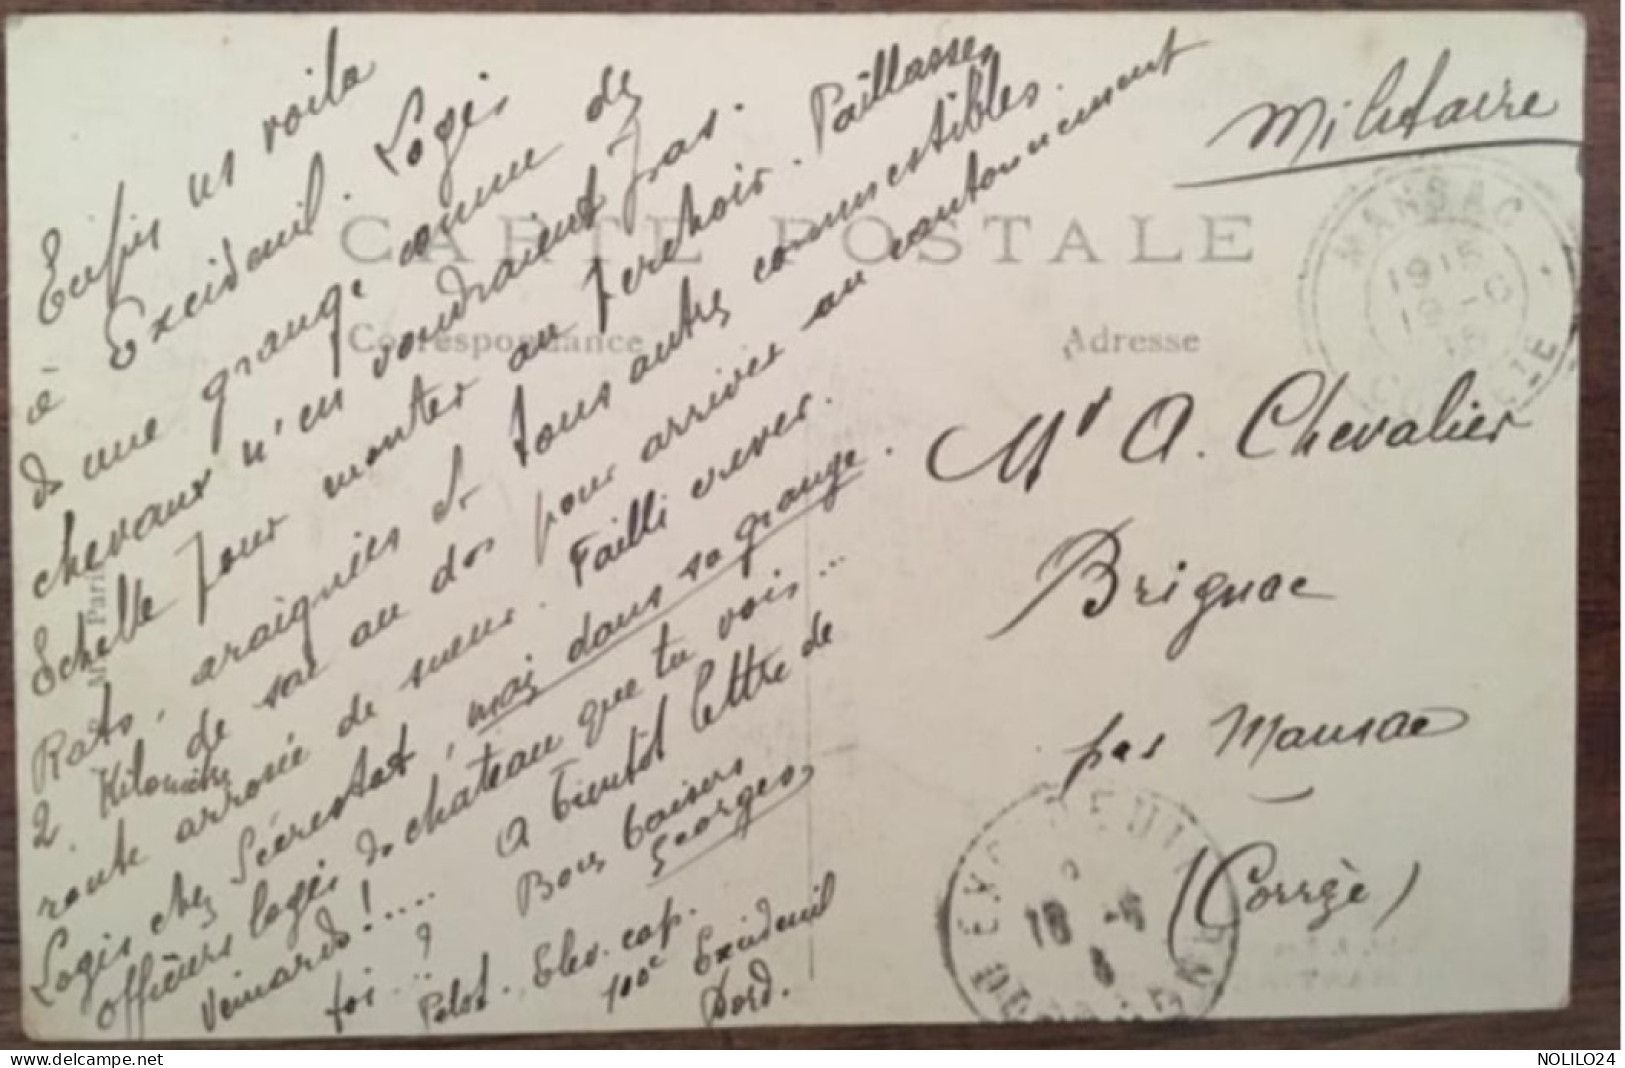 Enfin ns voila
à Excideuil. Logés
ds une grange comme des
chevaux n'en voudraient pas.
Echelle pour monter au perchoir. Paillasses,
Rats, araignées et tous autres comestibles.
2 Kilomètres de sac au dos pour arriver au cantonnement
route arrosée de sueur. Failli crever.
Logis chez Sérestat, mais dans sa grange.
officiers logés ds chateau que tu vois...
Veinards!.... A bientôt lettre de
toi...? Bons baisers
Georges
Pelot. Elev. cap.
100e Excideuil
Dord.
CARTE POSTALE
Correspondance
Adresse
Militaire
MANSAC
1915
CORRÈZE
Mr A. Chevalier
Brignac
par Mansac
(Corrèze)
EXCIDEUIL
DORDOGNE
Paris
delcampe.net
NOLILO24